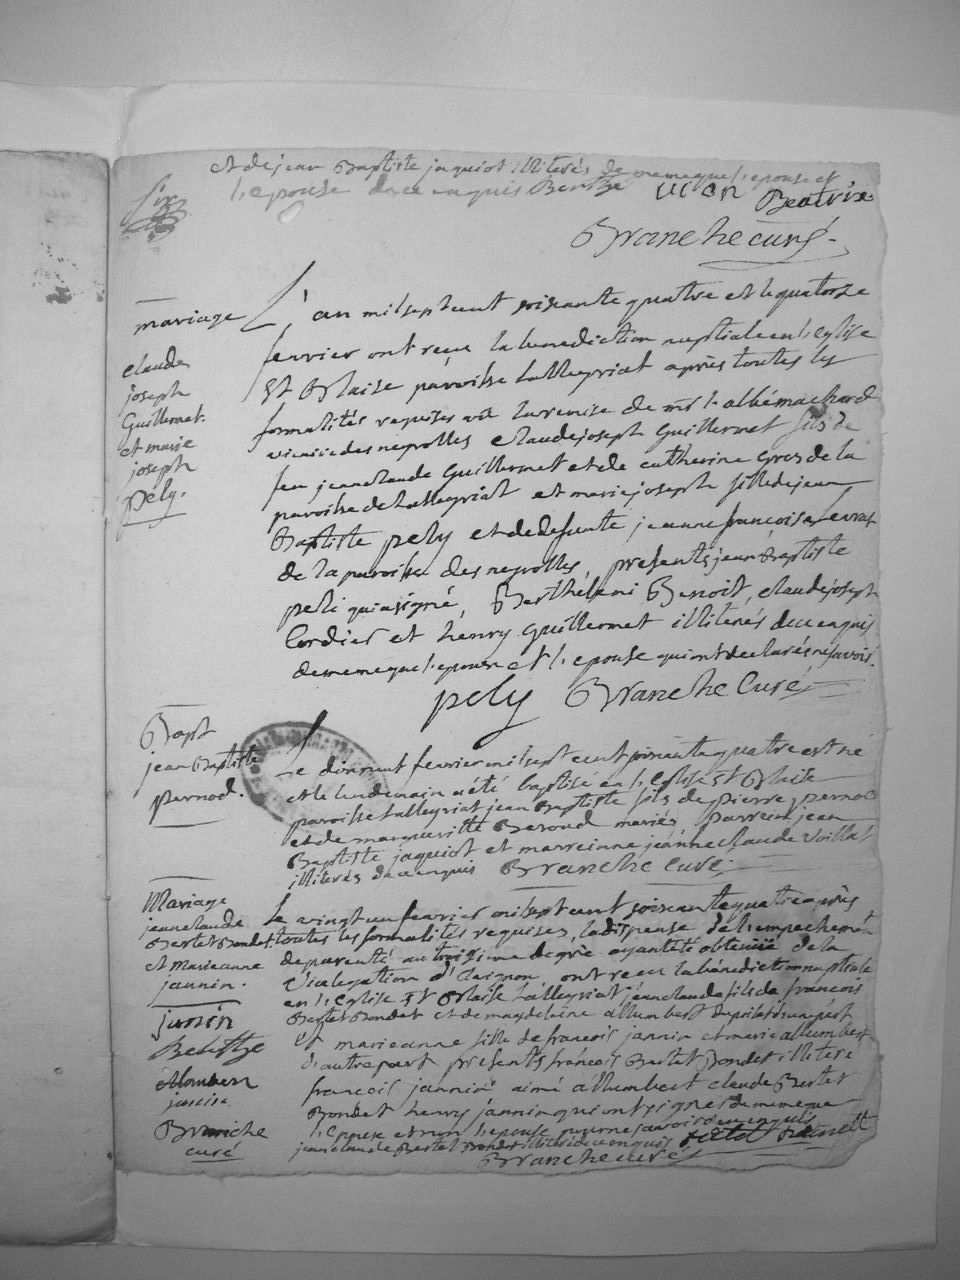 et de jean Baptiste jaquiot illiterés de mesme que l'epouse et
l'epouse de ce enquis Bertze
Beatrix
Six
Branche curé
mariage
claude
joseph
Guillermet
et marie
joseph
pely.
L'an mil sept cent soixante quatre et le quatorze
fevrier ont reçu la benediction nuptiale en l'eglise
St Blaise paroisse talleyriat après toutes les
formalités requises vû la remise de mr l'abbé machard
vicaire des neyrolles claude joseph Guillermet fils de
feu jean claude Guillermet et de catherine gros de la
paroisse de talleyriat et marie joseph fille de jean
Baptiste pely et de defunte jeanne françoise evrat
de la paroisse des neyrolles, presents jean Baptiste
peli qui a signé, Berthélemi Benoit, claude joseph
Cordier et henry guillermet illiterés de ce enquis
de meme que l'epoux et l'epouse qui ont declarés ne savoir.
pely Branche Curé
Bapt
jean Baptiste
pernod.
Le dixneuf fevrier mil sept cent soixante quatre est né
et le lendemain a été baptisé en l'eglise St Blaise
paroisse talleyriat jean Baptiste fils de pierre pernod
et de margueritte Beroud mariés parrein jean
Baptiste jaquiot et marreinne jeanne claude Vuillat
illiterés de ce enquis Branche Curé
Mariage
jean claude
Bertet Bondet
et Marieanne
jannin.
Le vingt un fevrier mil sept cent soixante quatre après
toutes les formalités requises, la dispense de l'empechement
de parenté au troisieme degré ayant été obtenue de la
Vicelegation d'Avignon ont reçu la bénédiction nuptiale
en l'eglise St Blaise talleyriat jean claude fils de francois
Bertet Bondet et de magdelaine allumbert d'une part
Et marieanne fille de francois jannin et marie allumbert
d'autre part presents francois Bertet Bondet illiteré
francois jannin aimé allumbert claude Bertet
Bondet henry jannin qui ont signés de meme que
l'epoux et non l'epouse pour ne savoir de ce enquis
jean claude Bertet Bondet illiteré de ce enquis
Branche curé
janin
Bertetze
Alomber
janin
Branche
curé